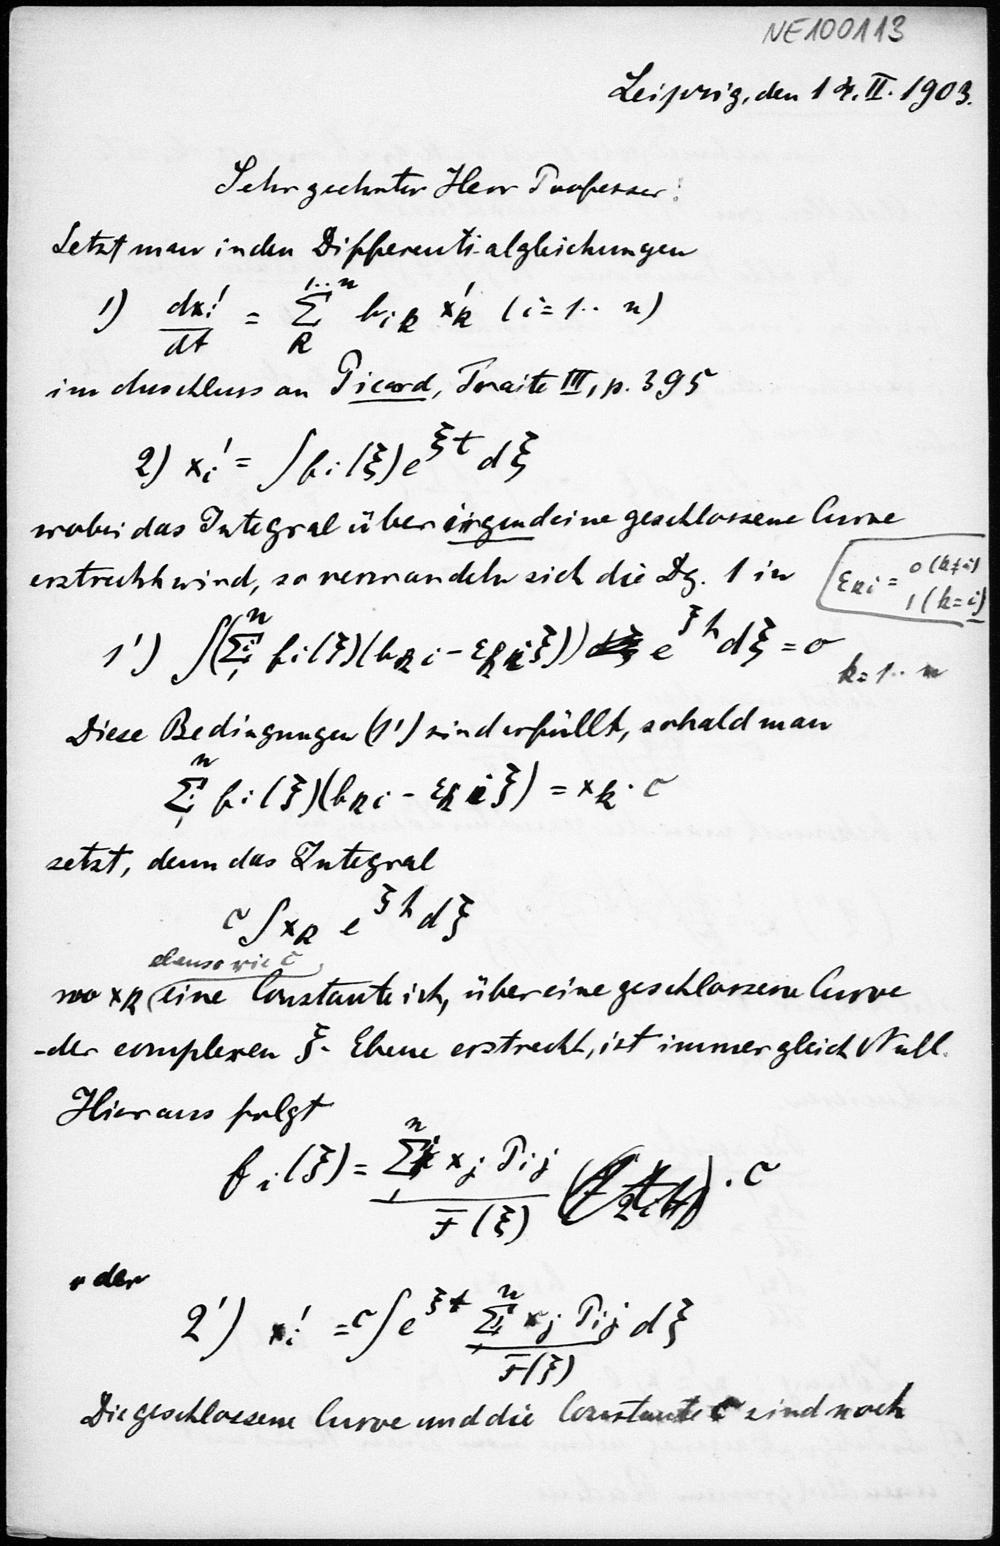 NE100113
Leipzig, den 14. II. 1903.
Sehr geehrter Herr Professor!
Setzt man in den Differentialgleichungen
1) dxi'/dt = Σ_k^{1..n} b_{ik} x'_k (i = 1.. n)
im Anschluss an Picard, Traité III, p. 395
2) x_i' = ∫ f_i(ξ) e^{ξt} dξ
wobei das Integral über irgendeine geschlossene Curve
erstreckt wird, so verwandeln sich die Dg. 1 in
ε_{ki} = 0 (k≠i) 1 (k=i)
1') ∫(Σ_1^n f_i(ξ)(b_{ki} - ε_{ki}ξ)) e^{ξt} dξ = 0
k = 1.. n
Diese Bedingungen (1') sind erfüllt, sobald man
Σ_1^n f_i(ξ)(b_{ki} - ε_{ki}ξ) = x_k · c
setzt, denn das Integral
c ∫ x_k e^{ξt} dξ
ebenso wie c
wo x_k eine Constante ist, über eine geschlossene Curve
der complexen ξ-Ebene erstreckt, ist immer gleich Null.
Hieraus folgt
f_i(ξ) = Σ_1^n x_j P_{ij} / F(ξ) · c
oder
2') x_i' = c ∫ e^{ξt} Σ_1^n x_j P_{ij} / F(ξ) dξ
Die geschlossene Curve und die Constante c sind noch